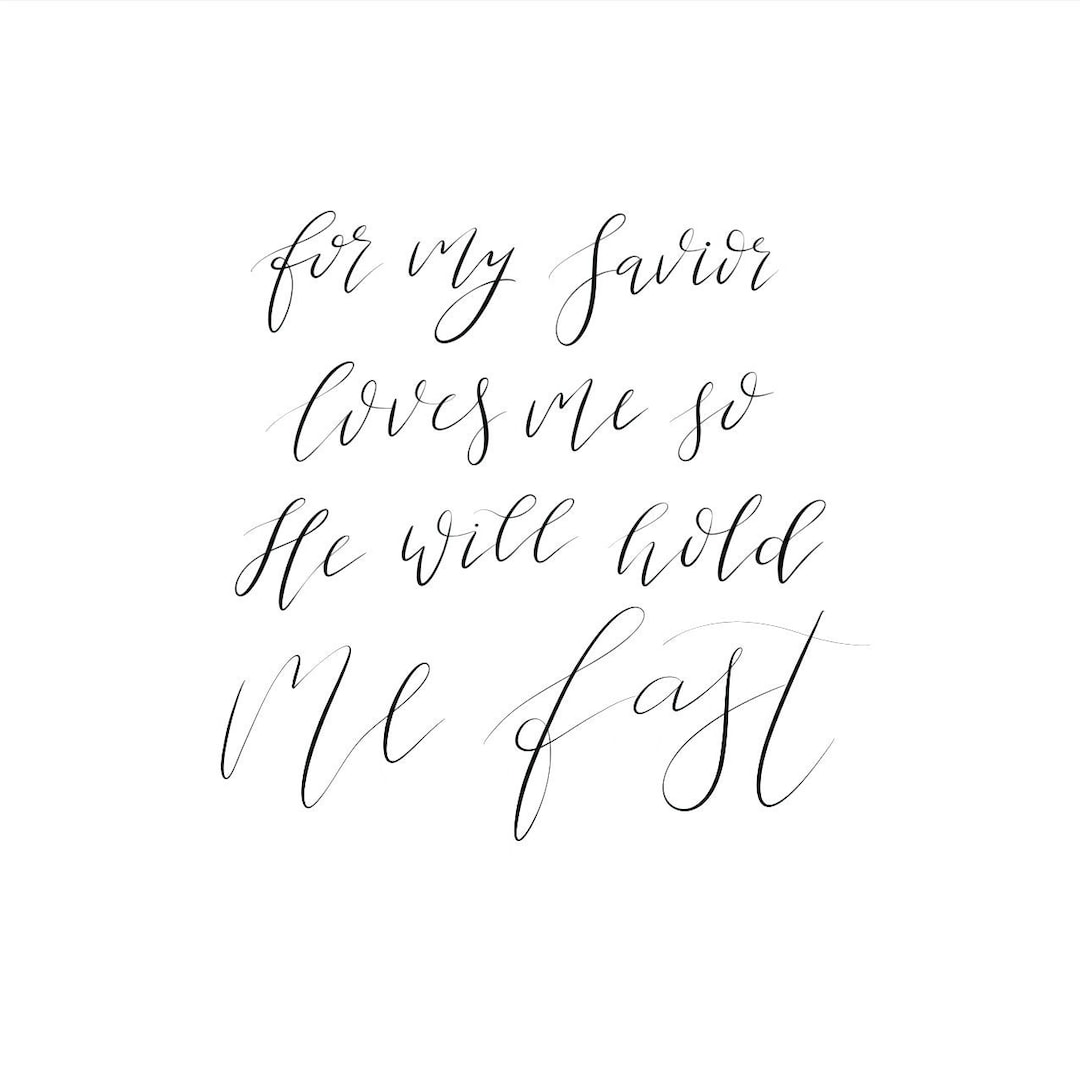 for my Savior
loves me so
He will hold
me fast